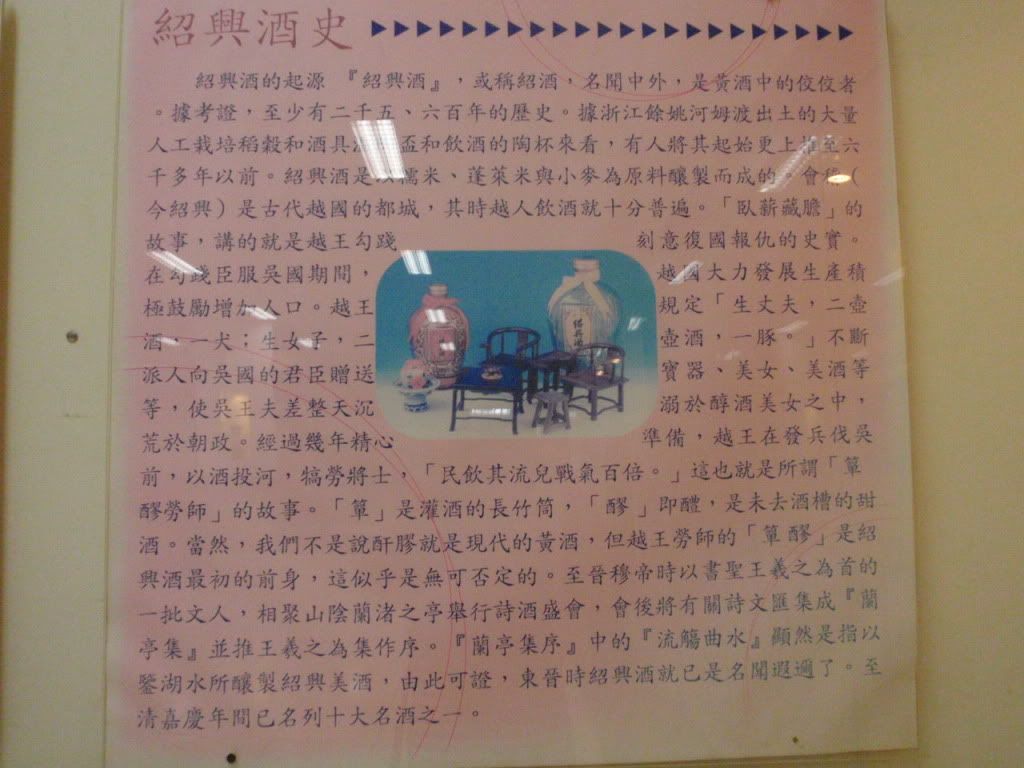 紹興酒史
紹興酒的起源 『紹興酒』，或稱紹酒，名聞中外，是黃酒中的佼佼者
。據考證，至少有二千五、六百年的歷史。據浙江餘姚河姆渡出土的大量
人工栽培稻穀和酒具 盉和飲酒的陶杯來看，有人將其起始更上推至六
千多年以前。紹興酒是以糯米、蓬萊米與小麥為原料釀製而成的。會稽（
今紹興）是古代越國的都城，其時越人飲酒就十分普遍。「臥薪藏膽」的
故事，講的就是越王勾踐 刻意復國報仇的史實。
在勾踐臣服吳國期間， 越國大力發展生產積
極鼓勵增加人口。越王 規定「生丈夫，二壺
酒，一犬；生女子，二 壺酒，一豚。」不斷
派人向吳國的君臣贈送 寶器、美女、美酒等
等，使吳王夫差整天沉 溺於醇酒美女之中，
荒於朝政。經過幾年精心 準備，越王在發兵伐吳
前，以酒投河，犒勞將士，「民飲其流兒戰氣百倍。」這也就是所謂「簞
醪勞師」的故事。「簞」是灌酒的長竹筒，「醪」即醴，是未去酒槽的甜
酒。當然，我們不是說酐膠就是現代的黃酒，但越王勞師的「簞醪」是紹
興酒最初的前身，這似乎是無可否定的。至晉穆帝時以書聖王羲之為首的
一批文人，相聚山陰蘭渚之亭舉行詩酒盛會，會後將有關詩文匯集成『蘭
亭集』並推王羲之為集作序。『蘭亭集序』中的『流觴曲水』顯然是指以
鑒湖水所釀製紹興美酒，由此可證，東晉時紹興酒就已是名聞遐邇了。至
清嘉慶年間已名列十大名酒之一。